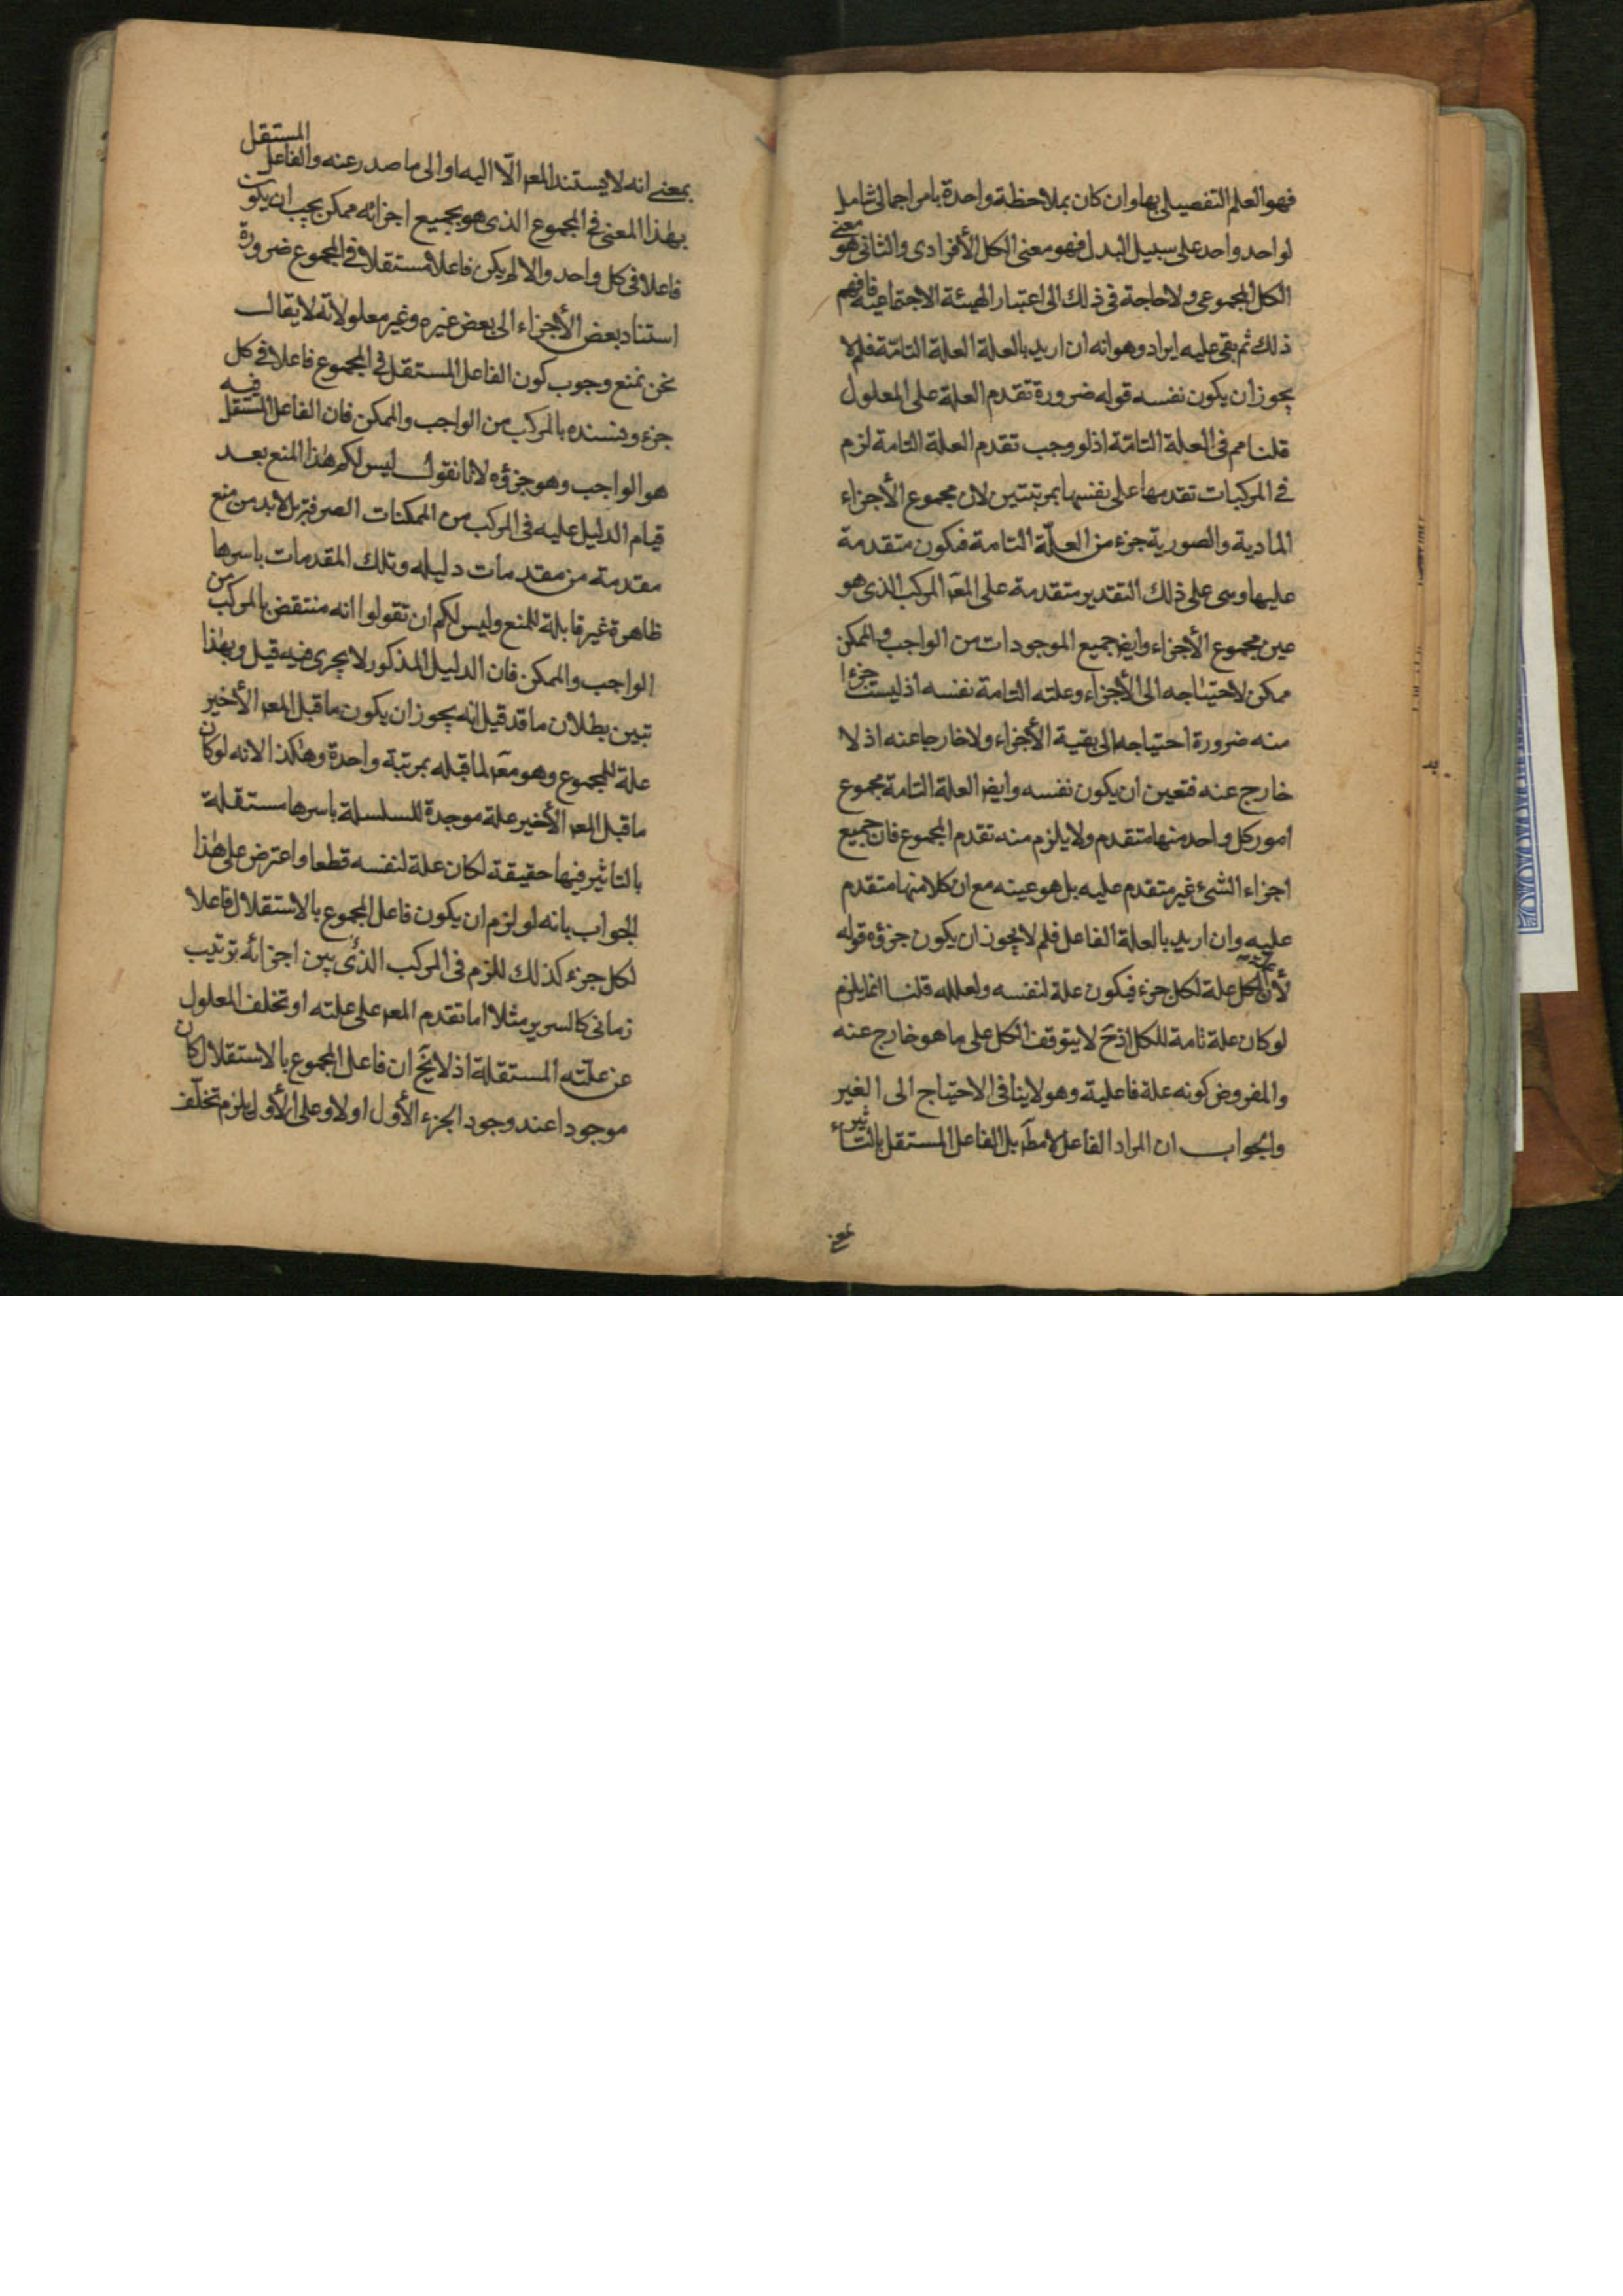 فهو العلم التفصيلى بها وان كان بملاحظة واحدة بامر اجمالى شامل
لواحد واحد على سبيل البدل فهو معنى الكل الأفرادى والثانى هو معنى
الكل المجموعى ولا حاجة فى ذلك الى اعتبار الهيئة الاجتماعية فافهم
ذلك ثم بقى عليه ايراد وهو انه ان اريد بالعلة العلة التامّة فلم لا
يجوز ان يكون نفسه قوله ضرورة تقدم العلة على المعلول
قلنا مم فى العلة التامّة اذ لو وجب تقدم العلة التامة لزم
فى المركبات تقدمها على نفسها بمرتبتين لان مجموع الأجزاء
المادية والصورية جزء من العلّة التامة فيكون متقدمة
عليها وهى على ذلك التقدير متقدمة على المعر المركب الذى هو
عين مجموع الأجزاء وايضر جميع الموجودات من الواجب والممكن
ممكن لاحتياجه الى الأجزاء وعلته التامة نفسه اذ ليست جزءا
منه ضرورة احتياجه الى بقية الأجزاء ولا خارجا عنه اذ لا
خارج عنه فتعين ان يكون نفسه وايضر العلة التامة مجموع
امور كل واحد منها متقدم ولا يلزم منه تقدم المجموع فان جميع
اجزاء الشئ غير متقدم عليه بل هو عينه مع ان كلا منها متقدم
عليه وان اريد بالعلة الفاعل فلم لا يجوز ان يكون جزؤه قوله
لأن الكل علة لكل جزء فيكون علة لنفسه ولعلله قلنا انما يلزم
لو كان علة تامة للكل اذ ح لا يتوقف الكل على ما هو خارج عنه
والمفروض كونه علة فاعلية وهو لا ينافى الاحتياج الى الغير
والجواب ان المراد الفاعل لا مطر بل الفاعل المستقل بالتاثير
بمعنى انه لا يستند المعر الّا اليه او الى ما صدر عنه والفاعل المستقل
بهذا المعنى فى المجموع الذى هو بجميع اجزائه ممكن يجب ان يكون
فاعلا فى كل واحد والا لم يكن فاعلا مستقلا فى المجموع ضرورة
استناد بعض الأجزاء الى بعض غيره وغير معلولاته لا يقال
نحن نمنع وجوب كون الفاعل المستقل فى المجموع فاعلا فى كل
جزء ونسنده بالمركب من الواجب والممكن فان الفاعل المستقل فيه
هو الواجب وهو جزؤه لانا نقول ليس لكم هذا المنع بعد
قيام الدليل عليه فى المركب من الممكنات الصرفة بل لا بد من منع
مقدمة من مقدمات دليله وتلك المقدمات باسرها
ظاهرة غير قابلة للمنع وليس لكم ان تقولوا انه منتقض بالمركب من
الواجب والممكن فان الدليل المذكور لا يجرى فيه قيل وبهذا
تبين بطلان ما قد قيل انه يجوز ان يكون ما قبل المعر الأخير
علة للمجموع وهو معر لما قبله بمرتبة واحدة وهكذا لانه لو كان
ما قبل المعر الأخير علة موجدة للسلسلة باسرها مستقلة
بالتاثير فيها حقيقة لكان علة لنفسه قطعا واعترض على هذا
الجواب بانه لو لزم ان يكون فاعل المجموع بالاستقلال فاعلا
لكل جزء كذلك للزم فى المركب الذى بين اجزائه ترتيب
زمانى كالسرير مثلا اما تقدم المعر على علته او تخلف المعلول
عن علّته المستقلة اذ لا يخ ان فاعل المجموع بالاستقلال كان
موجودا عند وجود الجزء الأول او لا وعلى الأول يلزم تخلف